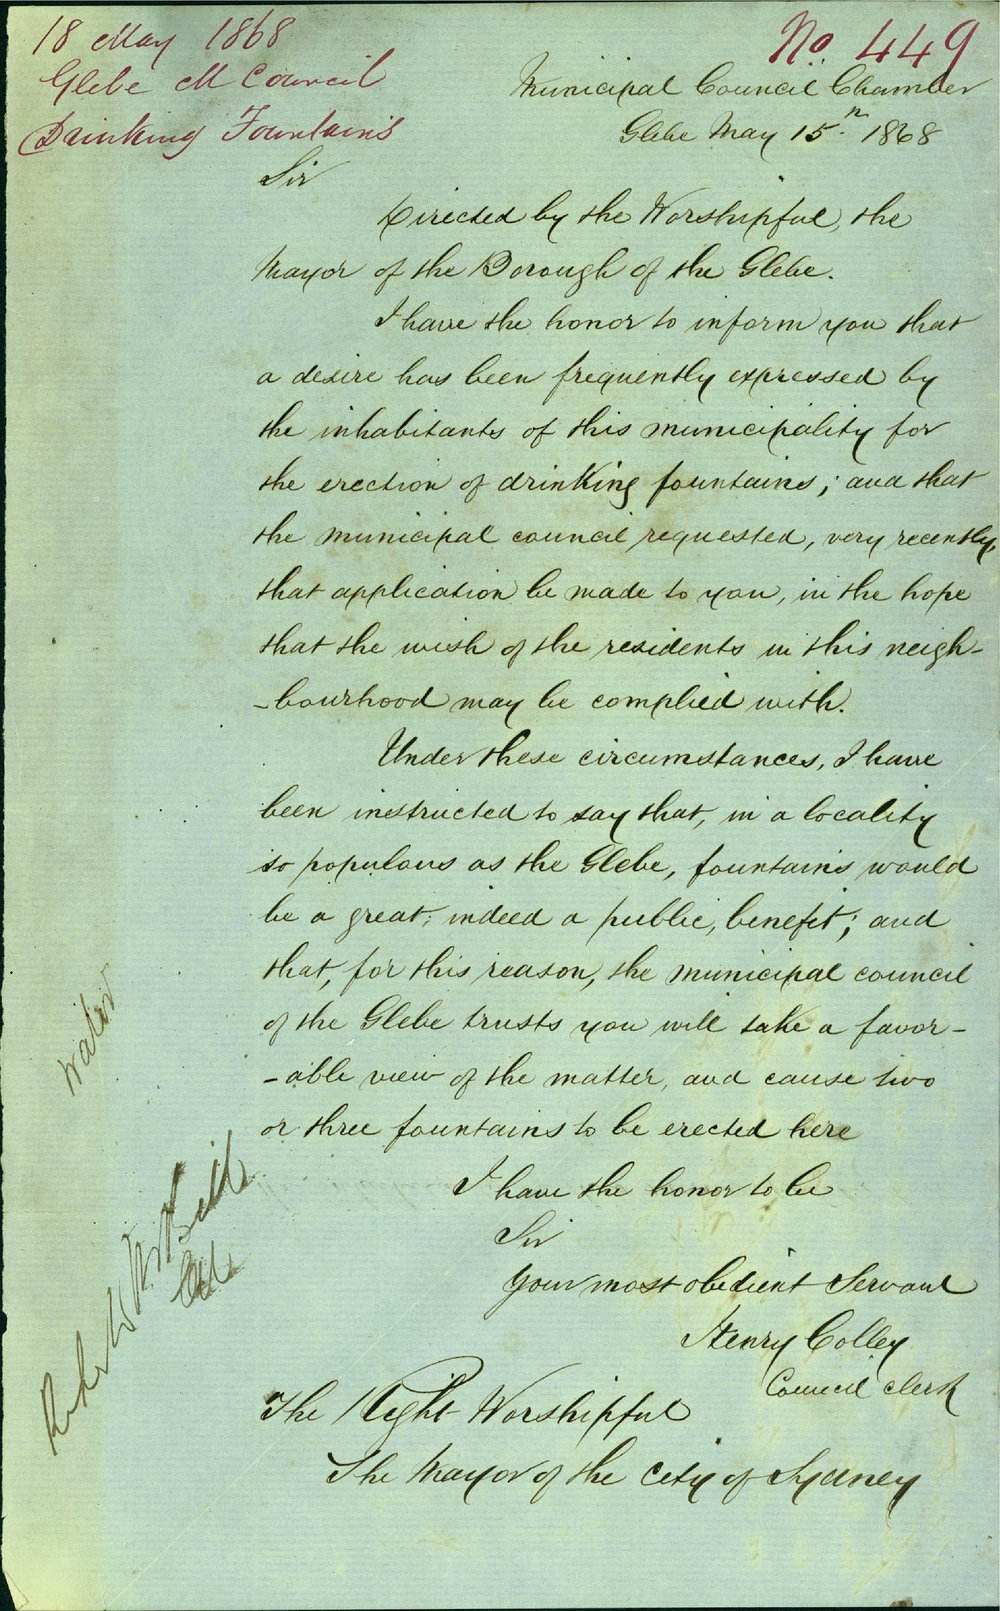 18 May 1868
Glebe M Council
Drinking Fountains
No. 449
Municipal Council Chamber
Glebe May 15th 1868
Sir
Directed by the Worshipful, the
Mayor of the Borough of the Glebe.
I have the honor to inform you that
a desire has been frequently expressed by
the inhabitants of this municipality for
the erection of drinking fountains; and that
the municipal council requested, very recently,
that application be made to you, in the hope
that the wish of the residents in this neigh-
-bourhood may be complied with.
Under these circumstances, I have
been instructed to say that, in a locality
so populous as the Glebe, fountains would
be a great, indeed a public, benefit; and
that, for this reason, the municipal council
of the Glebe trusts you will take a favor-
-able view of the matter, and cause two
or three fountains to be erected here
I have the honor to be
Sir
Your most obedient Servant
Henry Colley
Council Clerk
The Right Worshipful
The Mayor of the City of Sydney
Water